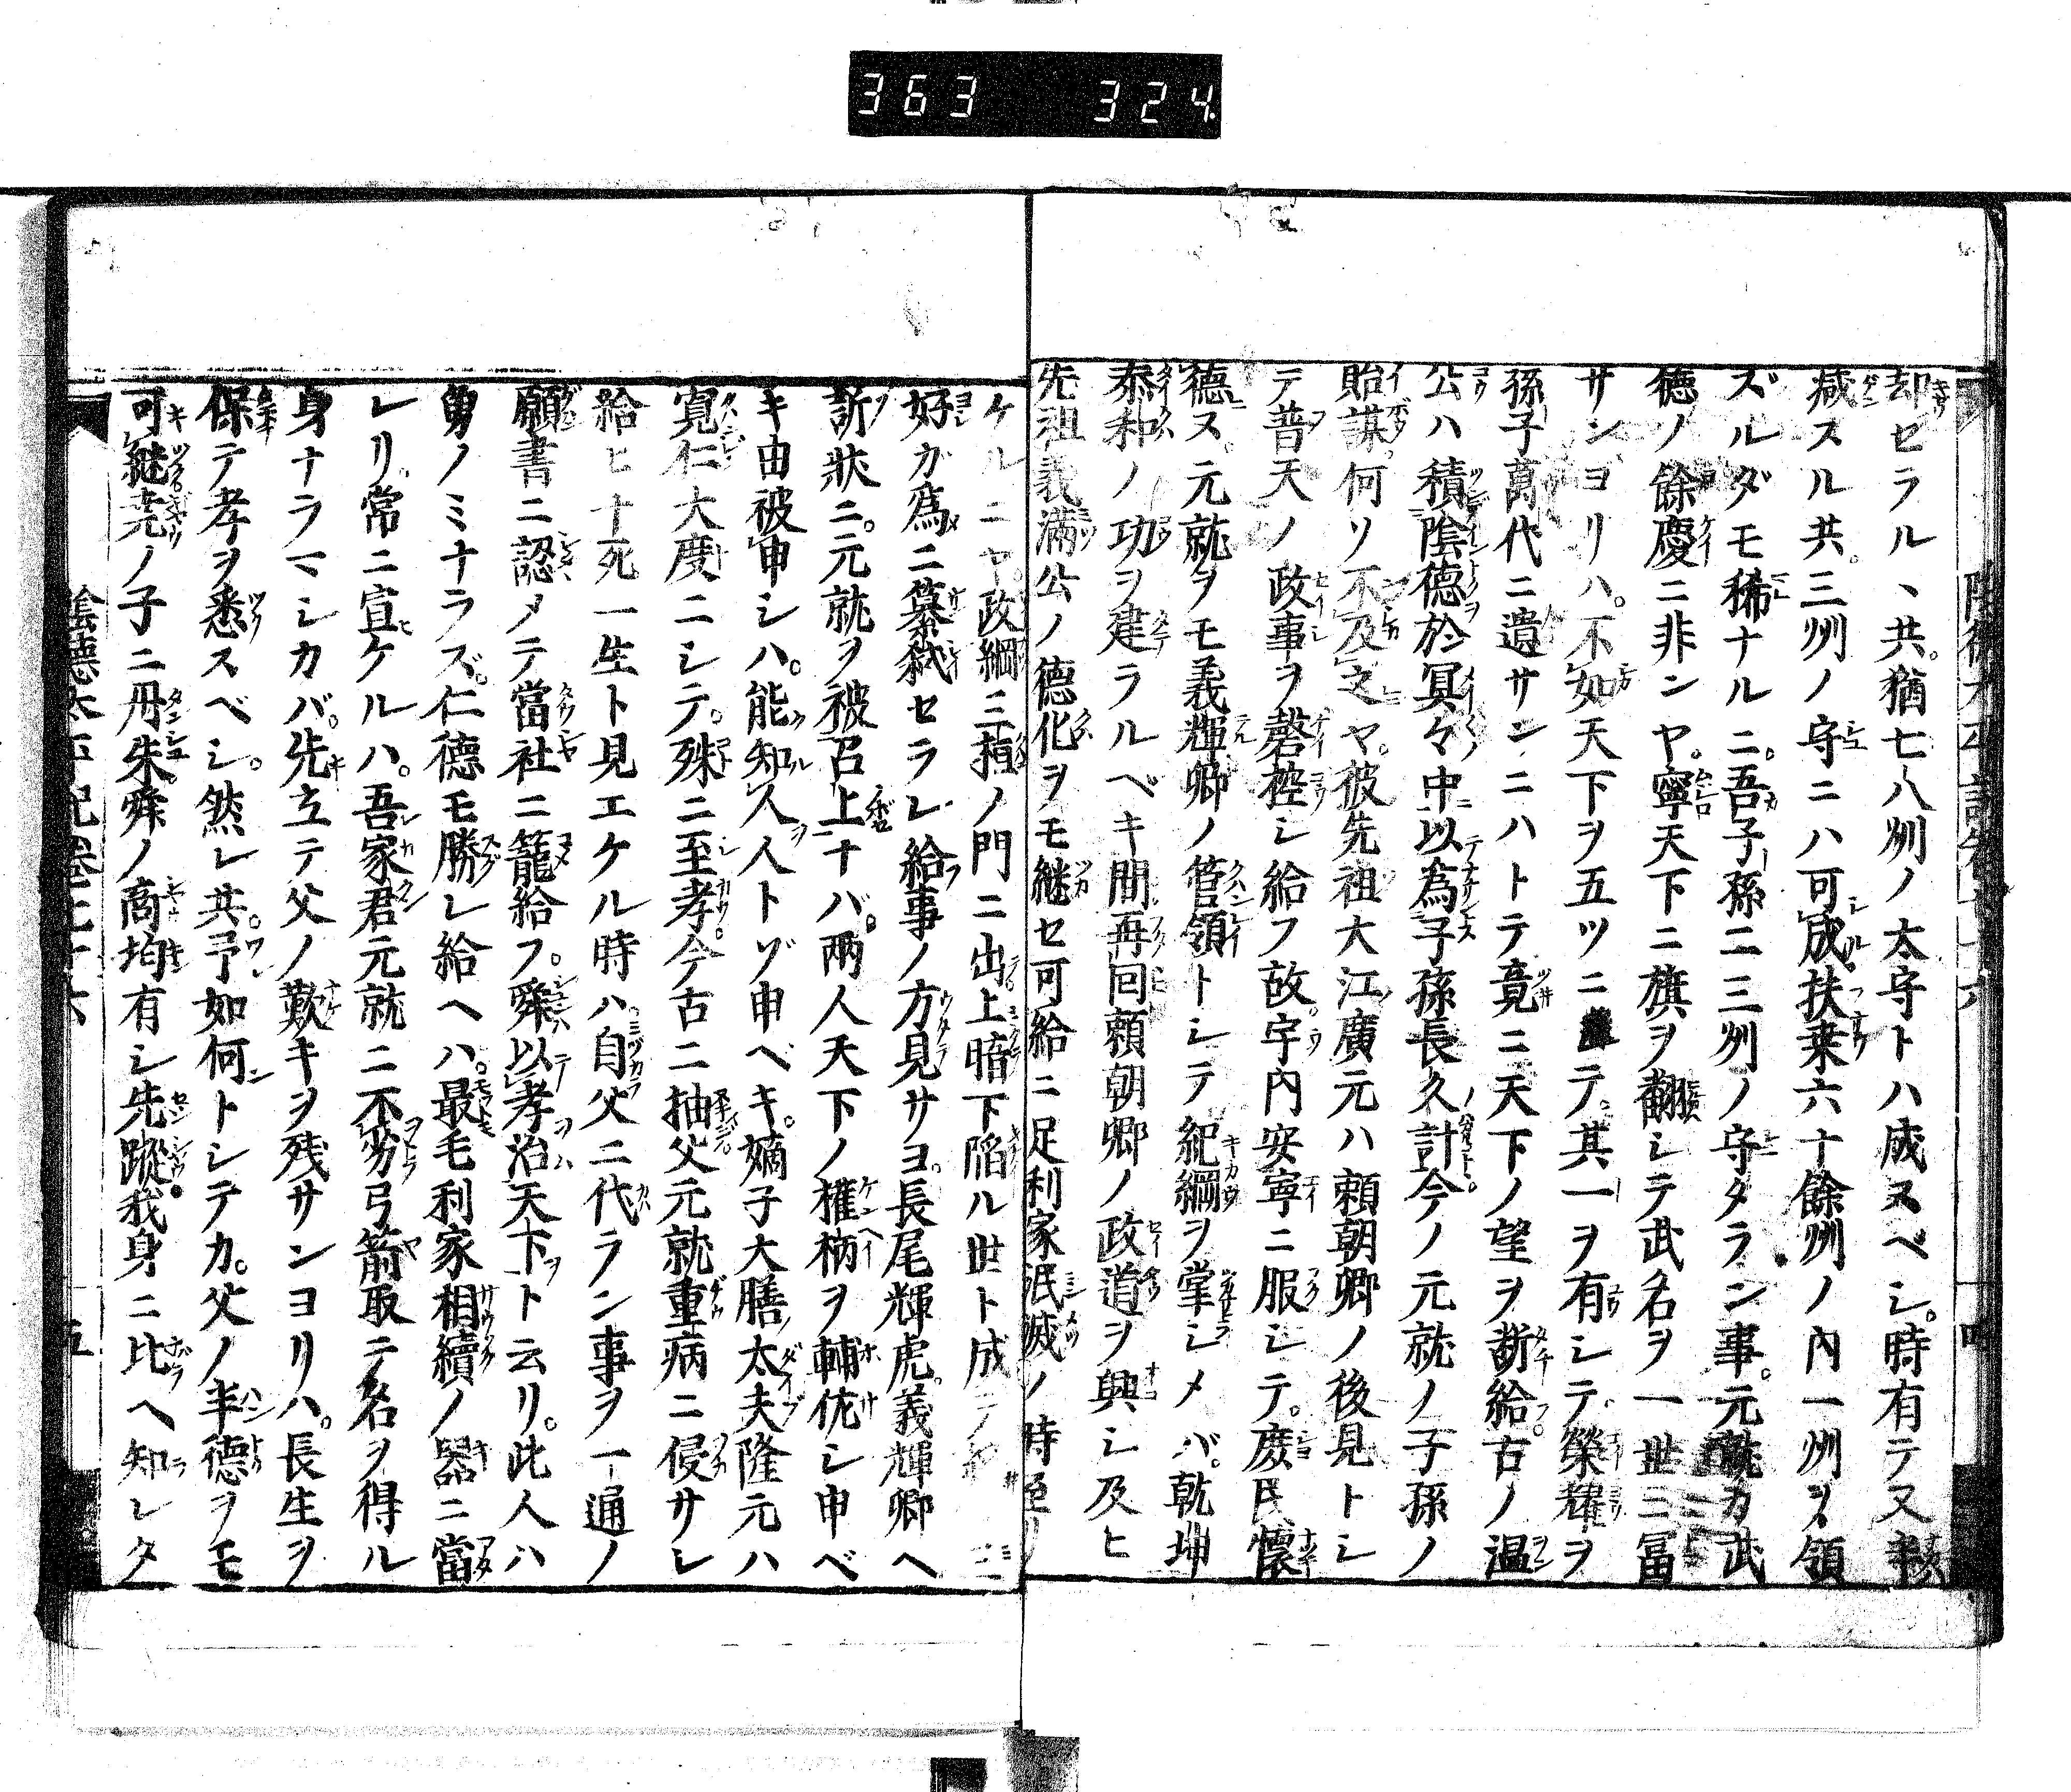 363 324
却セラルヽ共。猶七八州ノ太守トハ成ヌベシ。時有テ又半
減スル共。三州ノ守ニハ可成扶桒六十餘州ノ内一州ヲ領
ズルダモ稀ナルニ。吾子孫二三州ノ守タラン事。元就カ武
徳ノ餘慶ニ非ンヤ。寧天下ニ旗ヲ翻シテ武名ヲ一世ニ冨
サンヨリハ。不如天下ヲ五ツニ テ。其一ヲ有シテ榮耀ヲ
孫子萬代ニ遺サンニハトテ竟ニ天下ノ望ヲ断給フ。古ノ温
公ハ積陰徳於冥々中以為子孫長久計今ノ元就ノ子孫ノ
貽謀。何ソ不及之ヤ。彼先祖大江廣元ハ頼朝卿ノ後見トシ
テ普天ノ政事ヲ磬控シ給フ故。宇内安寧ニ服シテ。庶民懐
徳ス。元就ヲモ義輝卿ノ管領トシテ紀綱ヲ掌シメバ。乾坤
泰和ノ功ヲ建ラルベキ間再回頼朝卿ノ政道ヲ興シ及ヒ
先祖義満公ノ徳化ヲモ継セ可給ニ足利家泯滅ノ時至リ
ケルニヤ。政綱三桓ノ門ニ出上暗下陥ル世ト成テ
好カ為ニ簒弑セラレ給事ノ方見サヨ。長尾輝虎。義輝卿ヘ
訴状ニ。元就ヲ被召上ナバ。両人天下ノ權柄ヲ輔佐シ申ベ
キ由被申シハ。能知人人トゾ申ベキ。嫡子大膳太夫隆元ハ
寛仁大度ニシテ。殊ニ至孝。今古ニ抽父元就重病ニ侵サレ
給ヒ十死一生ト見エケル時ハ自父ニ代ラン事ヲ一通ノ
願書ニ認メテ當社ニ籠給フ。舜以孝治天下ト云リ。此人ハ
勇ノミナラズ。仁徳モ勝レ給ヘハ。最毛利家相續ノ器ニ當
レリ。常ニ宣ケルハ。吾家君元就ニ不劣弓箭取テ名ヲ得ル
身ナラマシカバ。先立テ父ノ歎キヲ残サンヨリハ。長生ヲ
保テ孝ヲ悉スベシ。然レ共。予如何トシテカ。父ノ半徳ヲモ
可継尭ノ子ニ丹朱。舜ノ商均有シ先蹤我身ニ比ヘ知レタ
陰徳太平記巻七十六 五